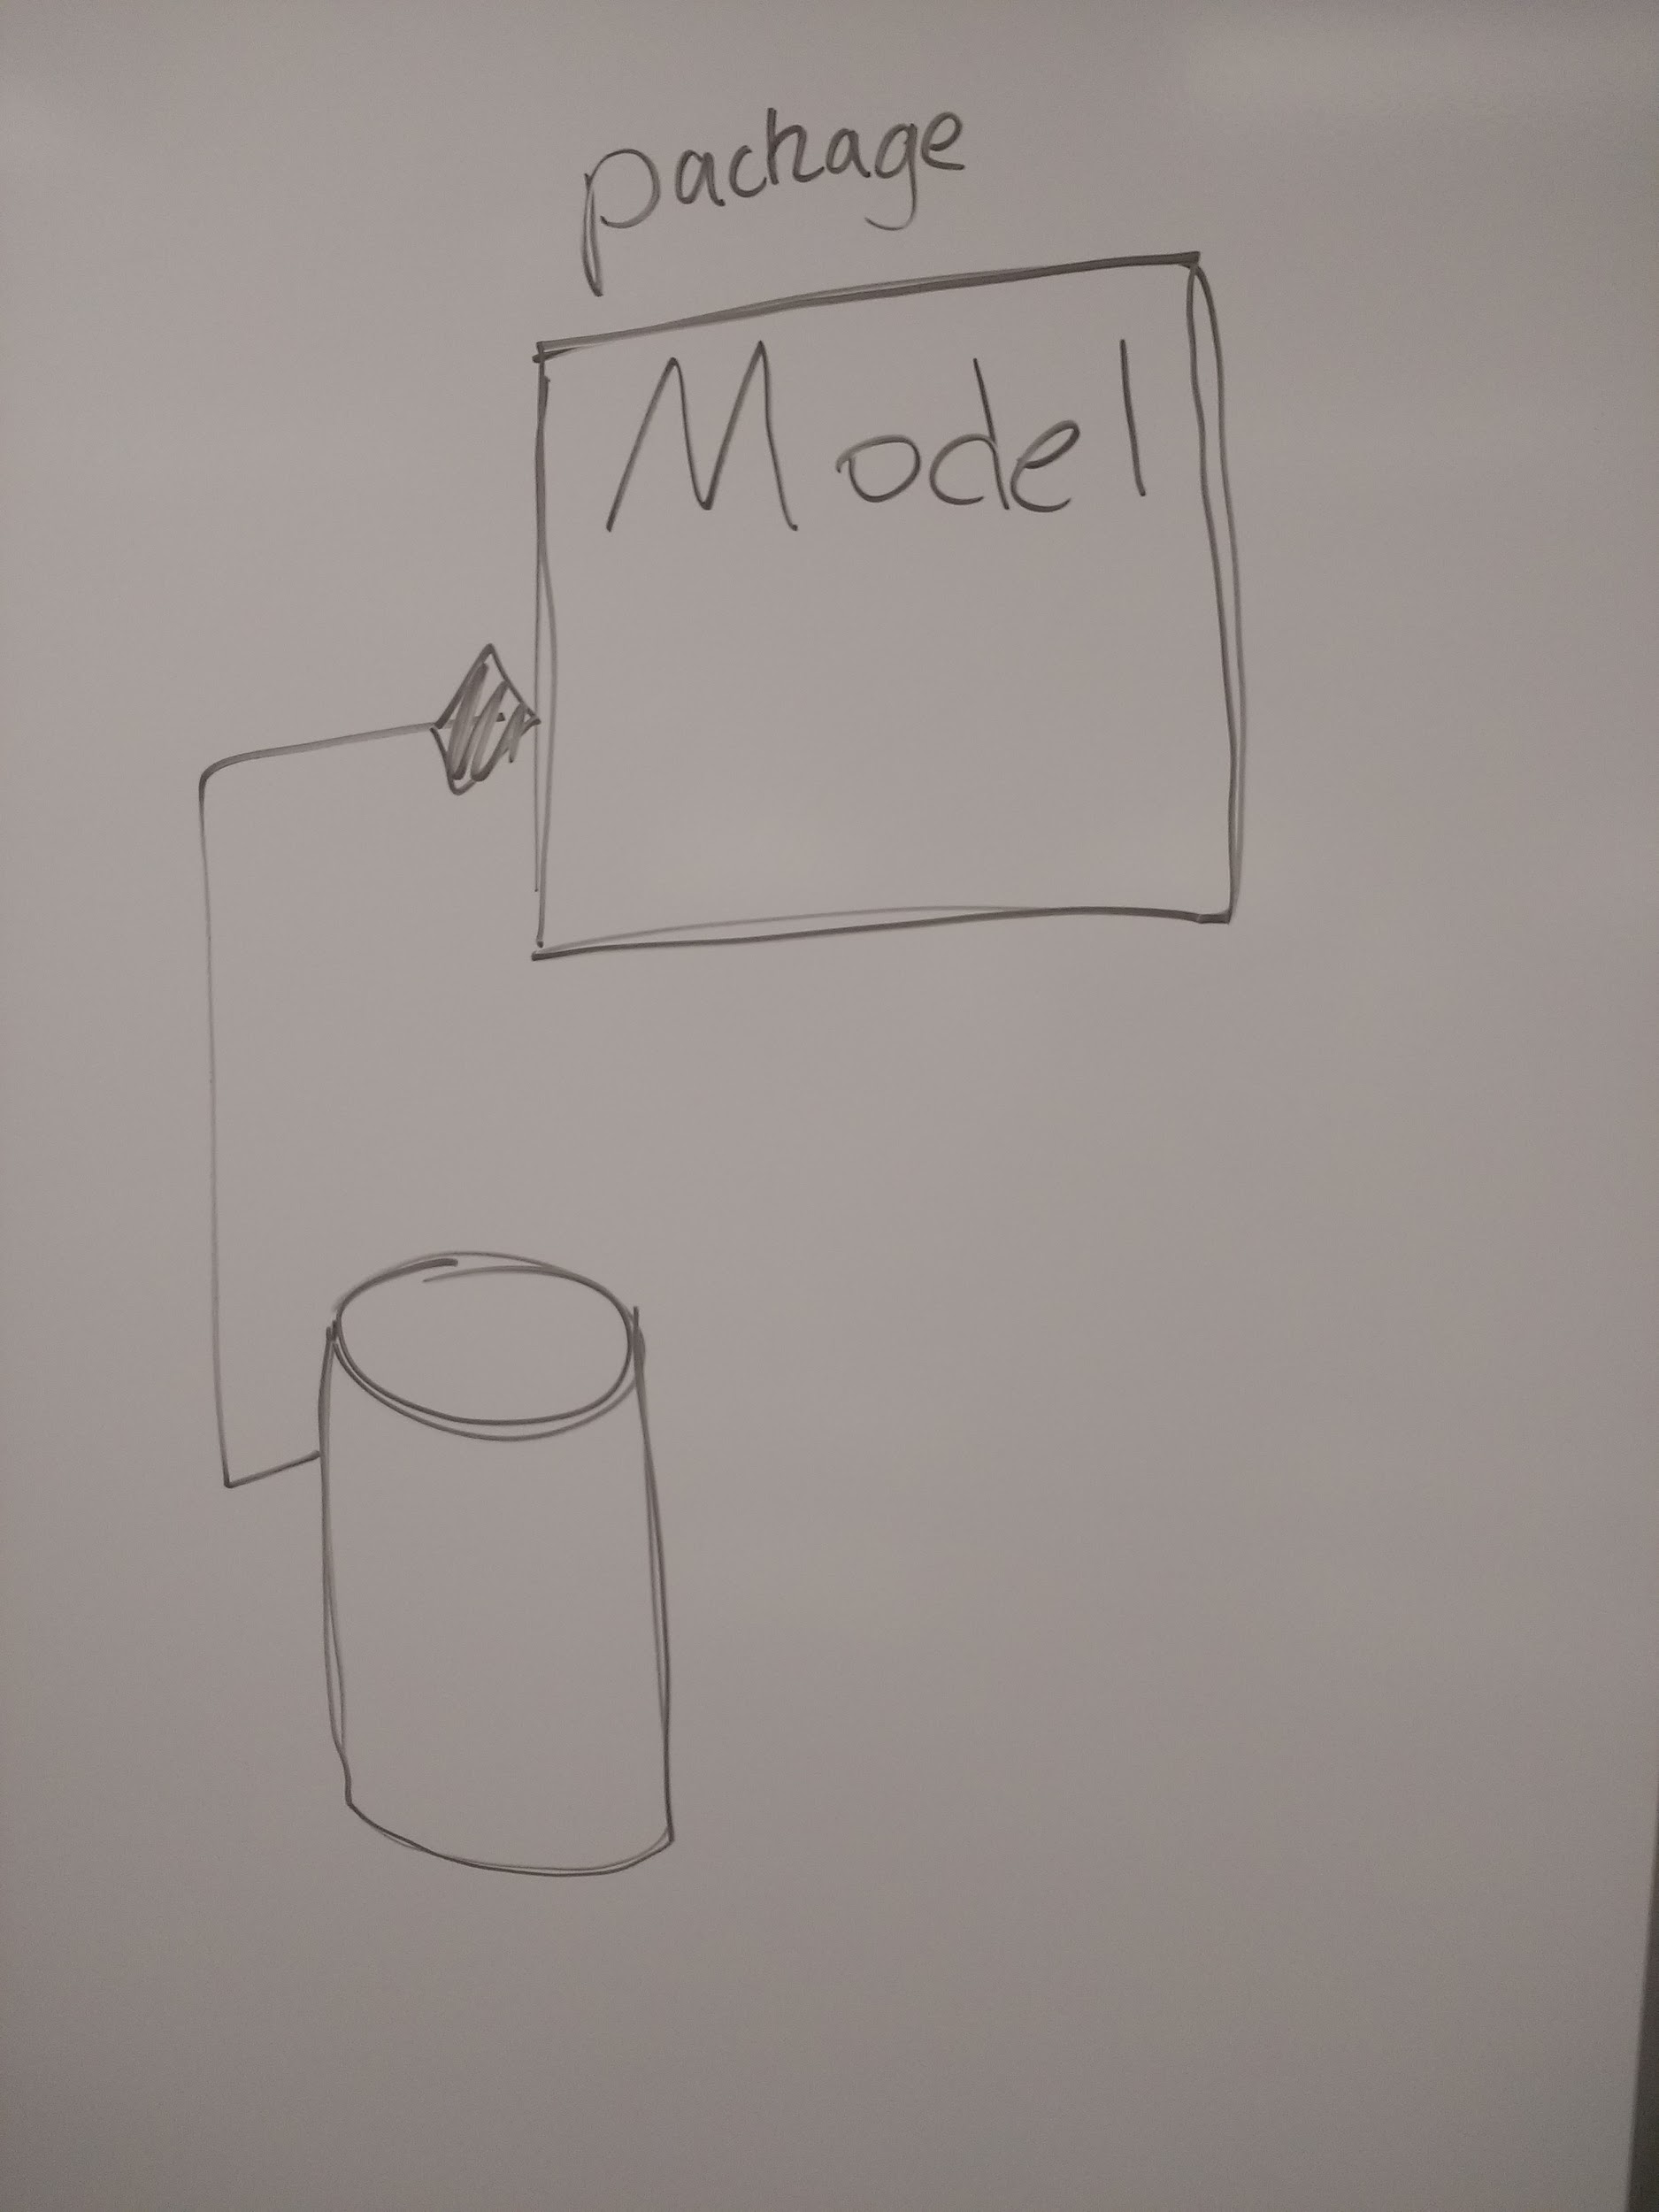 package
Model